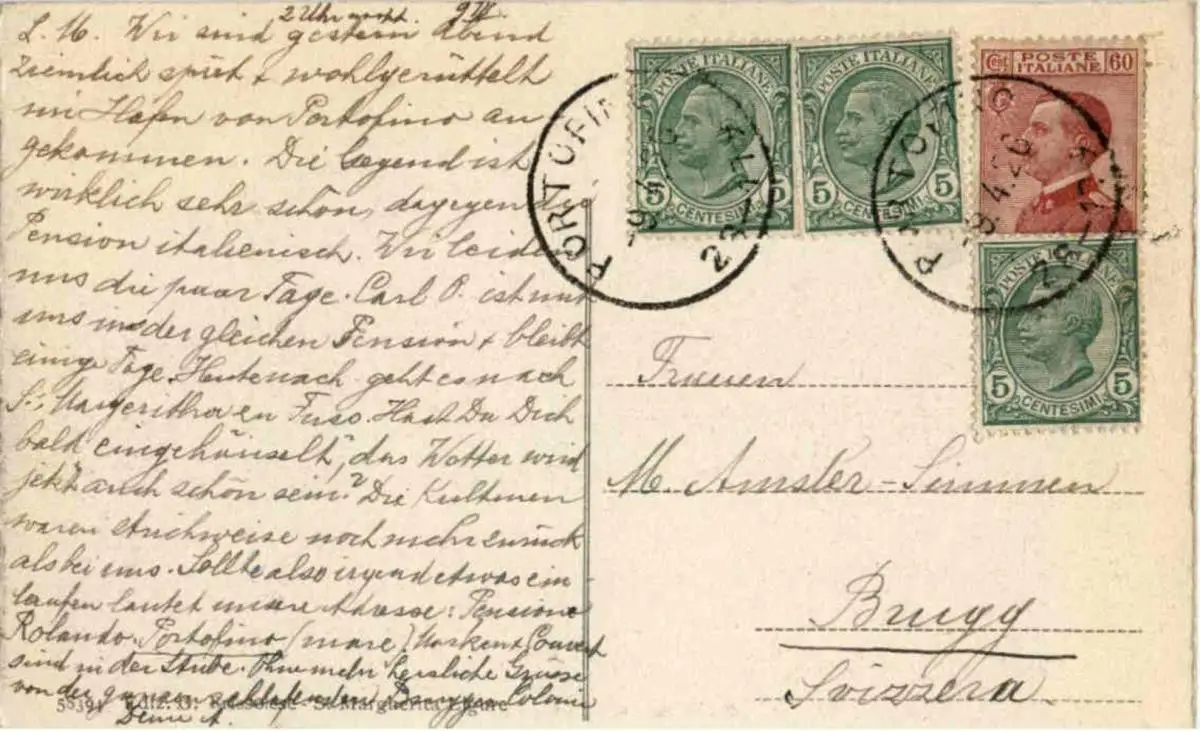 2 Uhr nacht. 9.IV.
L. M. Wir sind gestern Abend
ziemlich spät + wohlgerüttelt
im Hafen von Portofino an
gekommen. Die Gegend ist
wirklich sehr schön, dagegen die
Pension italienisch. Wir leide
uns die paar Tage. Carl P. ist mit
uns in der gleichen Pension + bleibt
einige Tage. Heute nach geht es nach
S. Margeritha zu Fuss. Hast Du Dich
bald eingehänselt, das Wetter wird
jetzt auch schön sein? Die Kulturen
waren strichweise noch mehr zurück
als bei uns. Sollte also irgend etwas ein-
laufen lautet unsere Adresse: Pensione
Rolando. Portofino (mare) Marken + Couvert
sind in der Stube. Ohne mehr herzliche Grüsse
von der ganzen Brugger Colonie
Deine A.
58391 Ediz. G. S. Margherita Ligure
POSTE ITALIANE
5 CENTESIMI 5
POSTE ITALIANE
5 CENTESIMI 5
Cent. POSTE ITALIANE 60
POSTE ITALIANE
5 CENTESIMI 5
PORTOFINO
PORTOFINO
-9.4.26
Frauen
M. Amsler-Simmen
Brugg
Svizzera